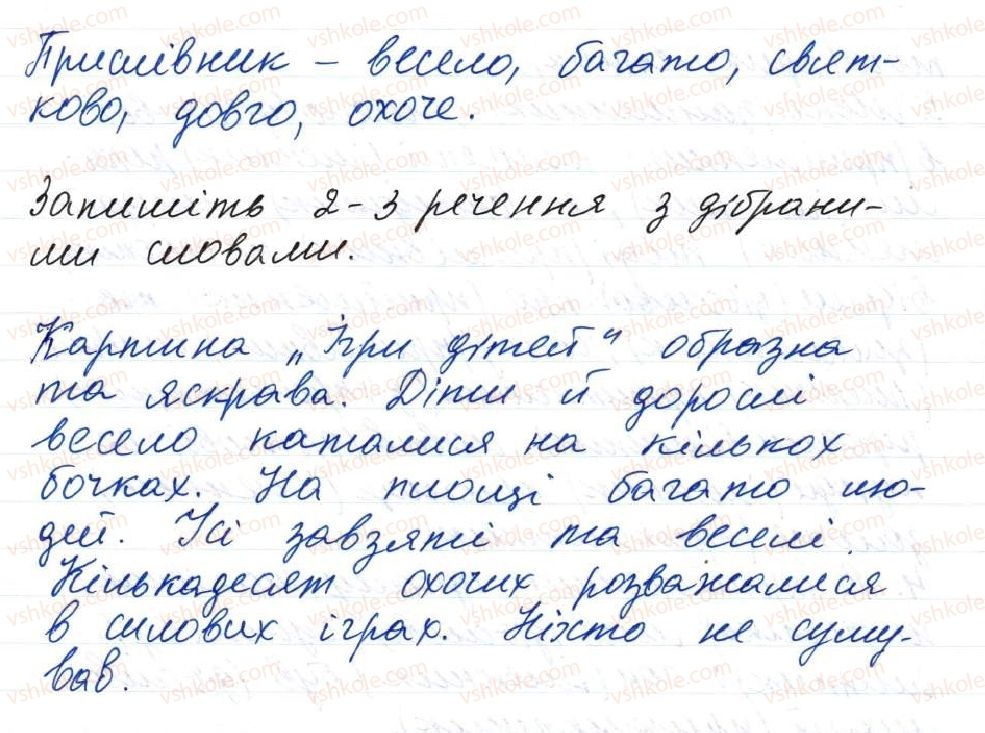 Прислівник – весело, багато, свят-
ково, довго, охоче.
Запишіть 2-3 речення з дібрани-
ми словами.
Картина „Ігри дітей“ образна
та яскрава. Діти й дорослі
весело каталися на кількох
бочках. На площі багато лю-
дей. Усі завзяті та веселі.
Кількадесят охочих розважалися
в силових іграх. Ніхто не суму-
вав.